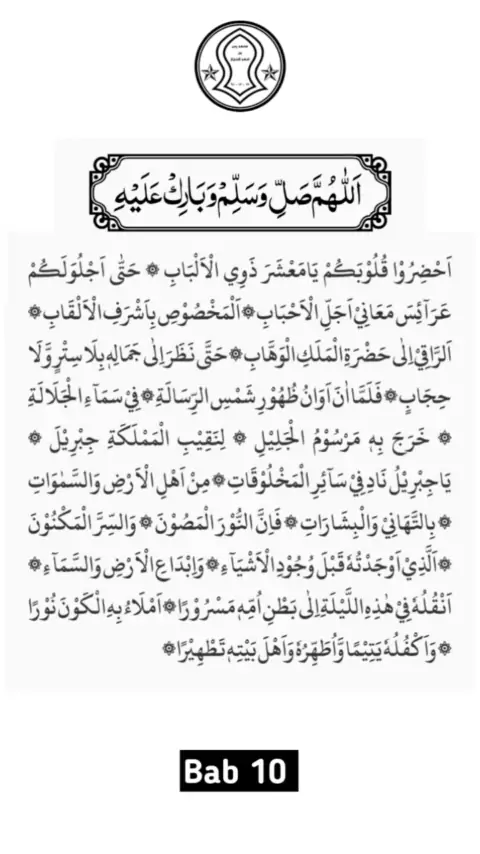 اَللّٰهُمَّ صَلِّ وَسَلِّمْ وَبَارِكْ عَلَيْهِ
اَحْضِرُوْا قُلُوْبَكُمْ يَامَعْشَرَ ذَوِي الْاَلْبَابِ ۞ حَتّٰى اَجْلُوَلَكُمْ
عَرَآئِسَ مَعَانِيْ اَجَلِّ الْاَحْبَابِ ۞ اَلْمَخْصُوْصِ بِاَشْرَفِ الْاَلْقَابِ ۞
اَلرَّاقِيْ اِلٰى حَضْرَةِ الْمَلَكِ الْوَهَّابِ ۞ حَتَّى نَظَرَ اِلٰى جَمَالِهِ بِلَا سِتْرٍ وَّلَا
حِجَابٍ ۞ فَلَمَّا اٰنَ اَوَانُ ظُهُوْرِ شَمْسِ الرِّسَالَةِ ۞ فِيْ سَمَآءِ الْجَلَالَةِ
۞ خَرَجَ بِهٖ مَرْسُوْمُ الْجَلِيْلِ ۞ لِنَقِيْبِ الْمَمْلَكَةِ جِبْرِيْلَ ۞
يَاجِبْرِيْلُ نَادِ فِيْ سَآئِرِ الْمَخْلُوْقَاتِ ۞ مِنْ اَهْلِ الْاَرْضِ وَالسَّمٰوَاتِ
۞ بِالتَّهَانِيْ وَالْبِشَارَاتِ ۞ فَاِنَّ النُّوْرَ الْمَصُوْنَ ۞ وَالسِّرَّ الْمَكْنُوْنَ
۞ اَلَّذِيْ اَوْجَدْتُهٗ قَبْلَ وُجُوْدِ الْاَشْيَآءِ ۞ وَاِبْدَاعِ الْاَرْضِ وَالسَّمَآءِ ۞
اَنْقُلُهٗ فِيْ هٰذِهِ اللَّيْلَةِ اِلٰى بَطْنِ اُمِّهٖ مَسْرُوْرًا ۞ اَمْلَاُ بِهِ الْكَوْنَ نُوْرًا
۞ وَاَكْفُلُهٗ يَتِيْمًا وَّاُطَهِّرُهٗ وَاَهْلَ بَيْتِهٖ تَطْهِيْرًا ۞
Bab 10